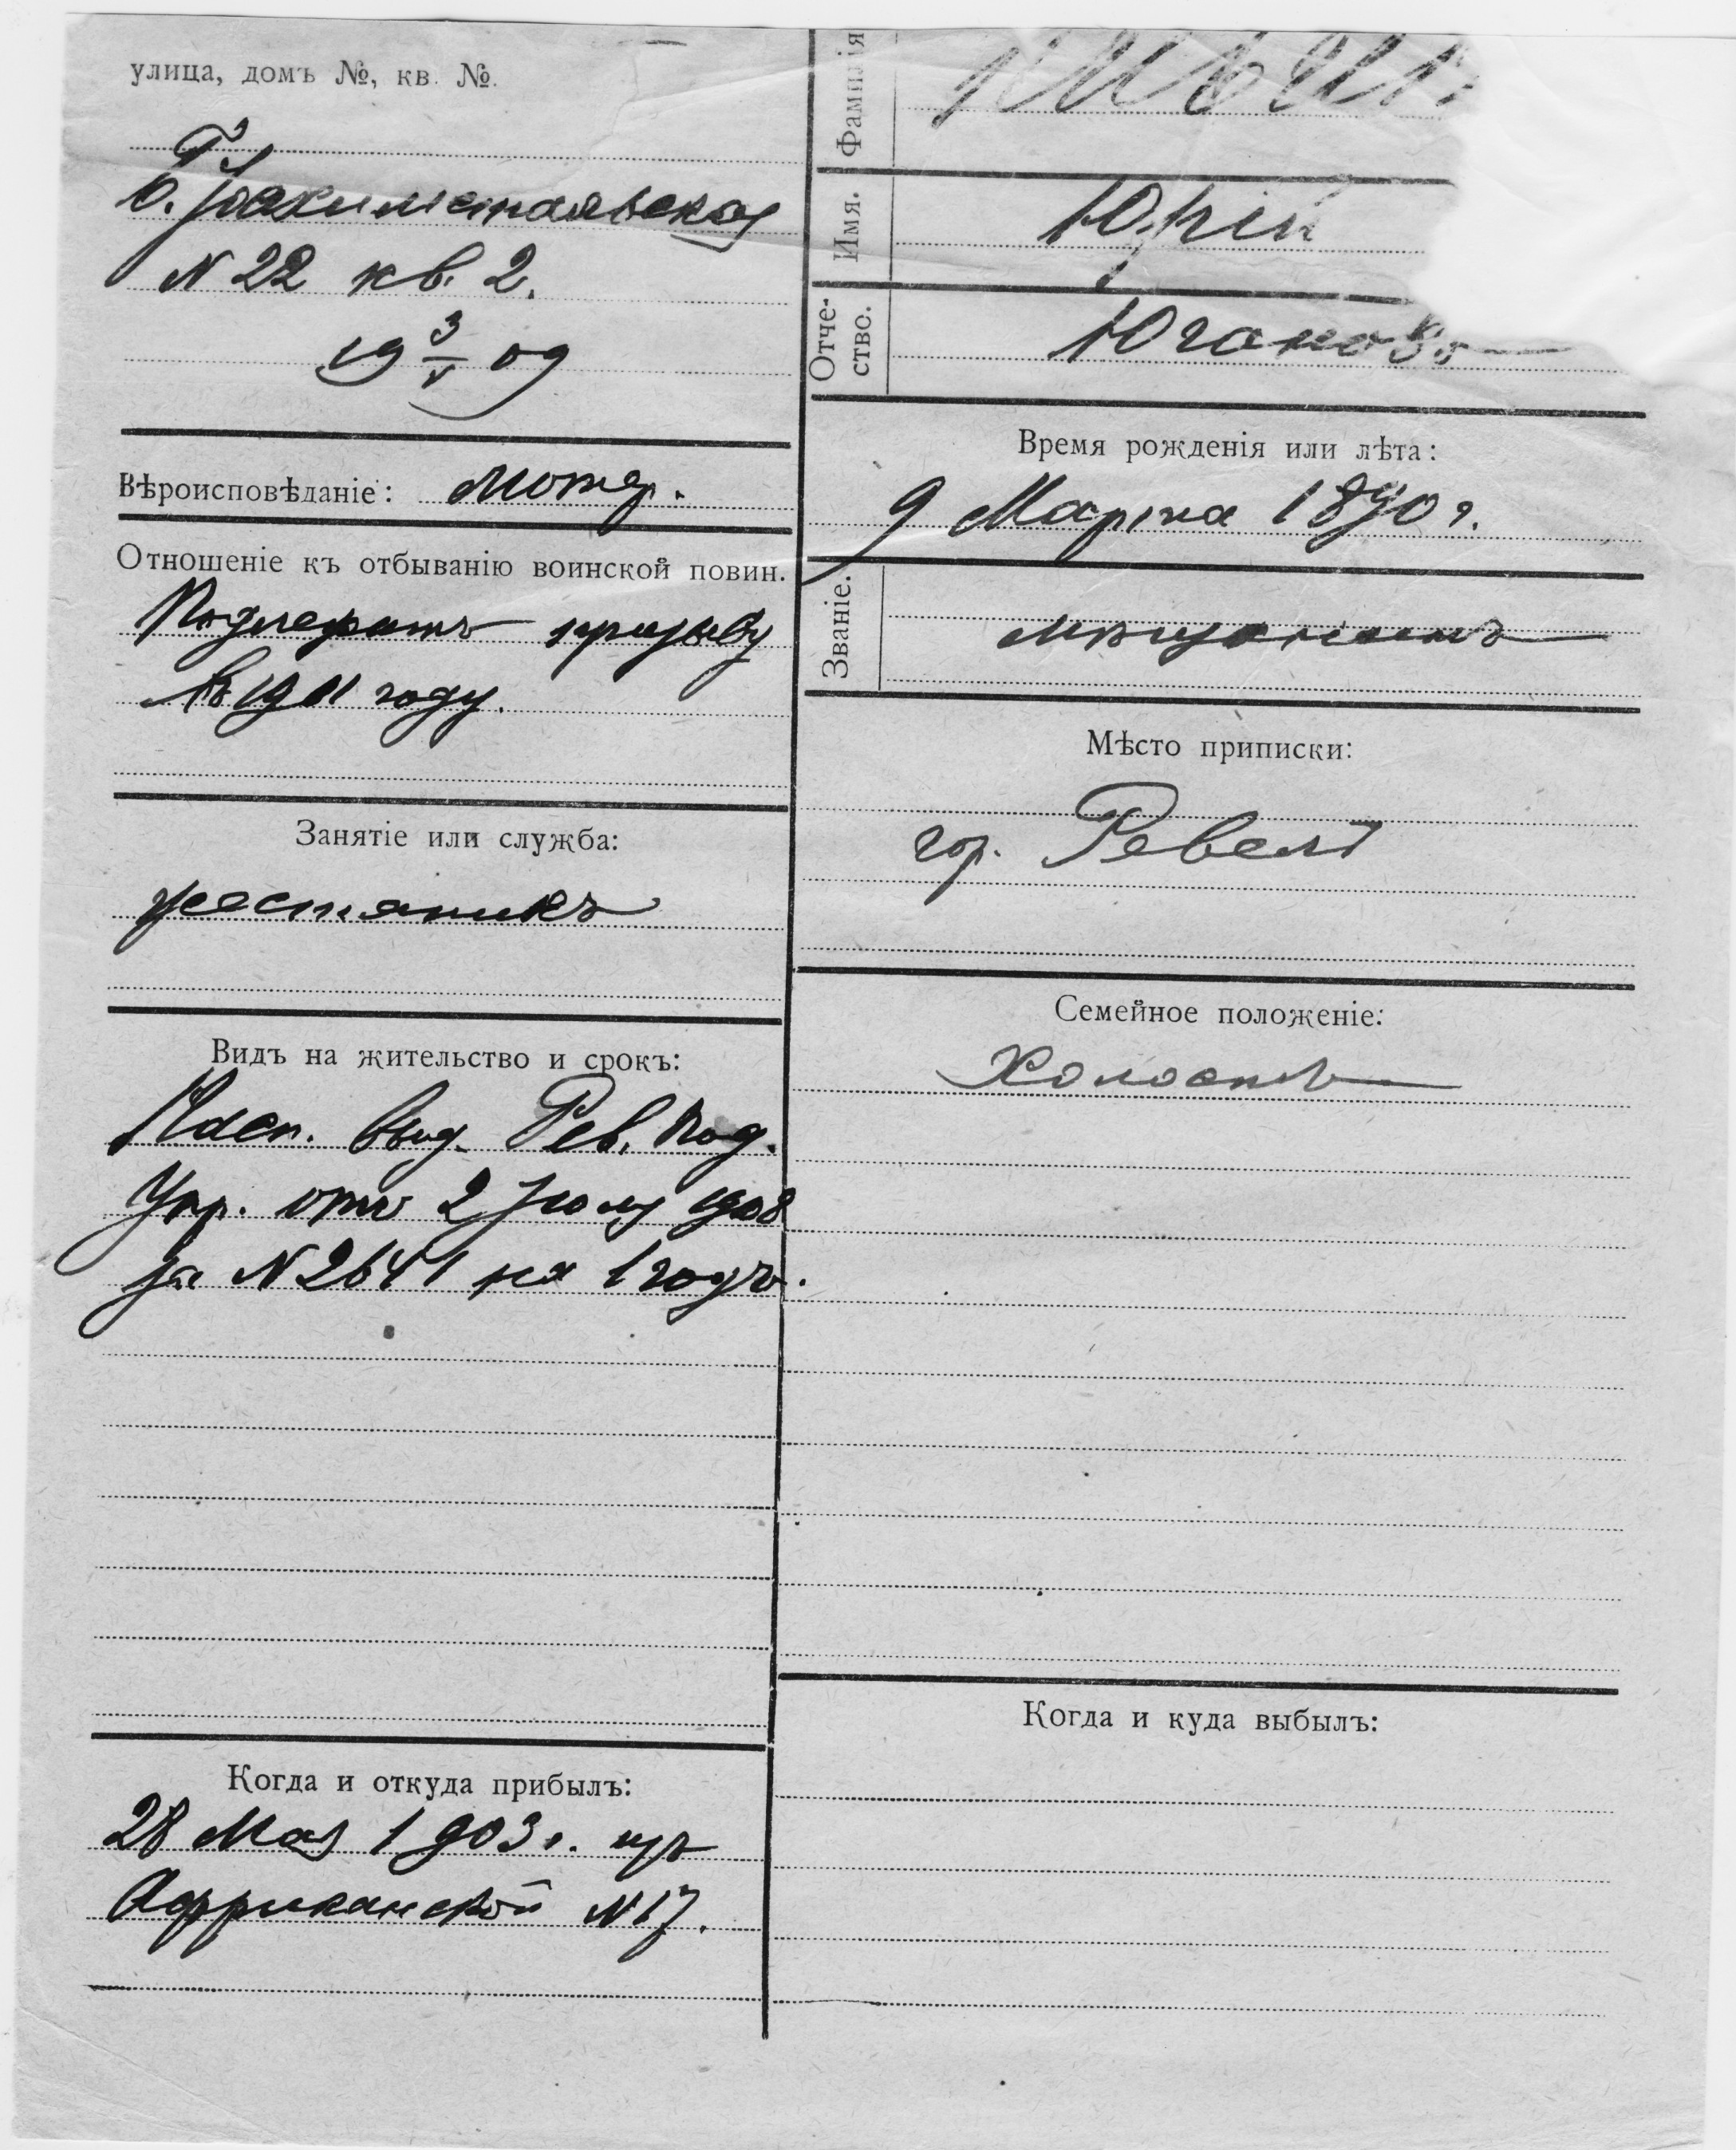 улица, домъ №, кв. №.
Б. Іоахимстальская
N 22 кв. 2.
19 3/V 09
Вѣроисповѣданіе: Лютер.
Отношеніе къ отбыванію воинской повин.
Подлежитъ призыву
въ 1911 году.
Занятіе или служба:
жестяникъ
Видъ на жительство и срокъ:
Пасп. выд. Рев. Под.
Упр. отъ 2 Іюля 1908
за N 2641 на 1 годъ.
Когда и откуда прибылъ:
28 Мая 1903 г. изъ
Африканской N 17.
Фамилія
Имя. Юрій
Отче-
ство. Юганов
Время рожденія или лѣта:
9 Марта 1890 г.
Званіе. мѣщанинъ
Мѣсто приписки:
гор. Ревель
Семейное положеніе:
Холостъ
Когда и куда выбылъ: